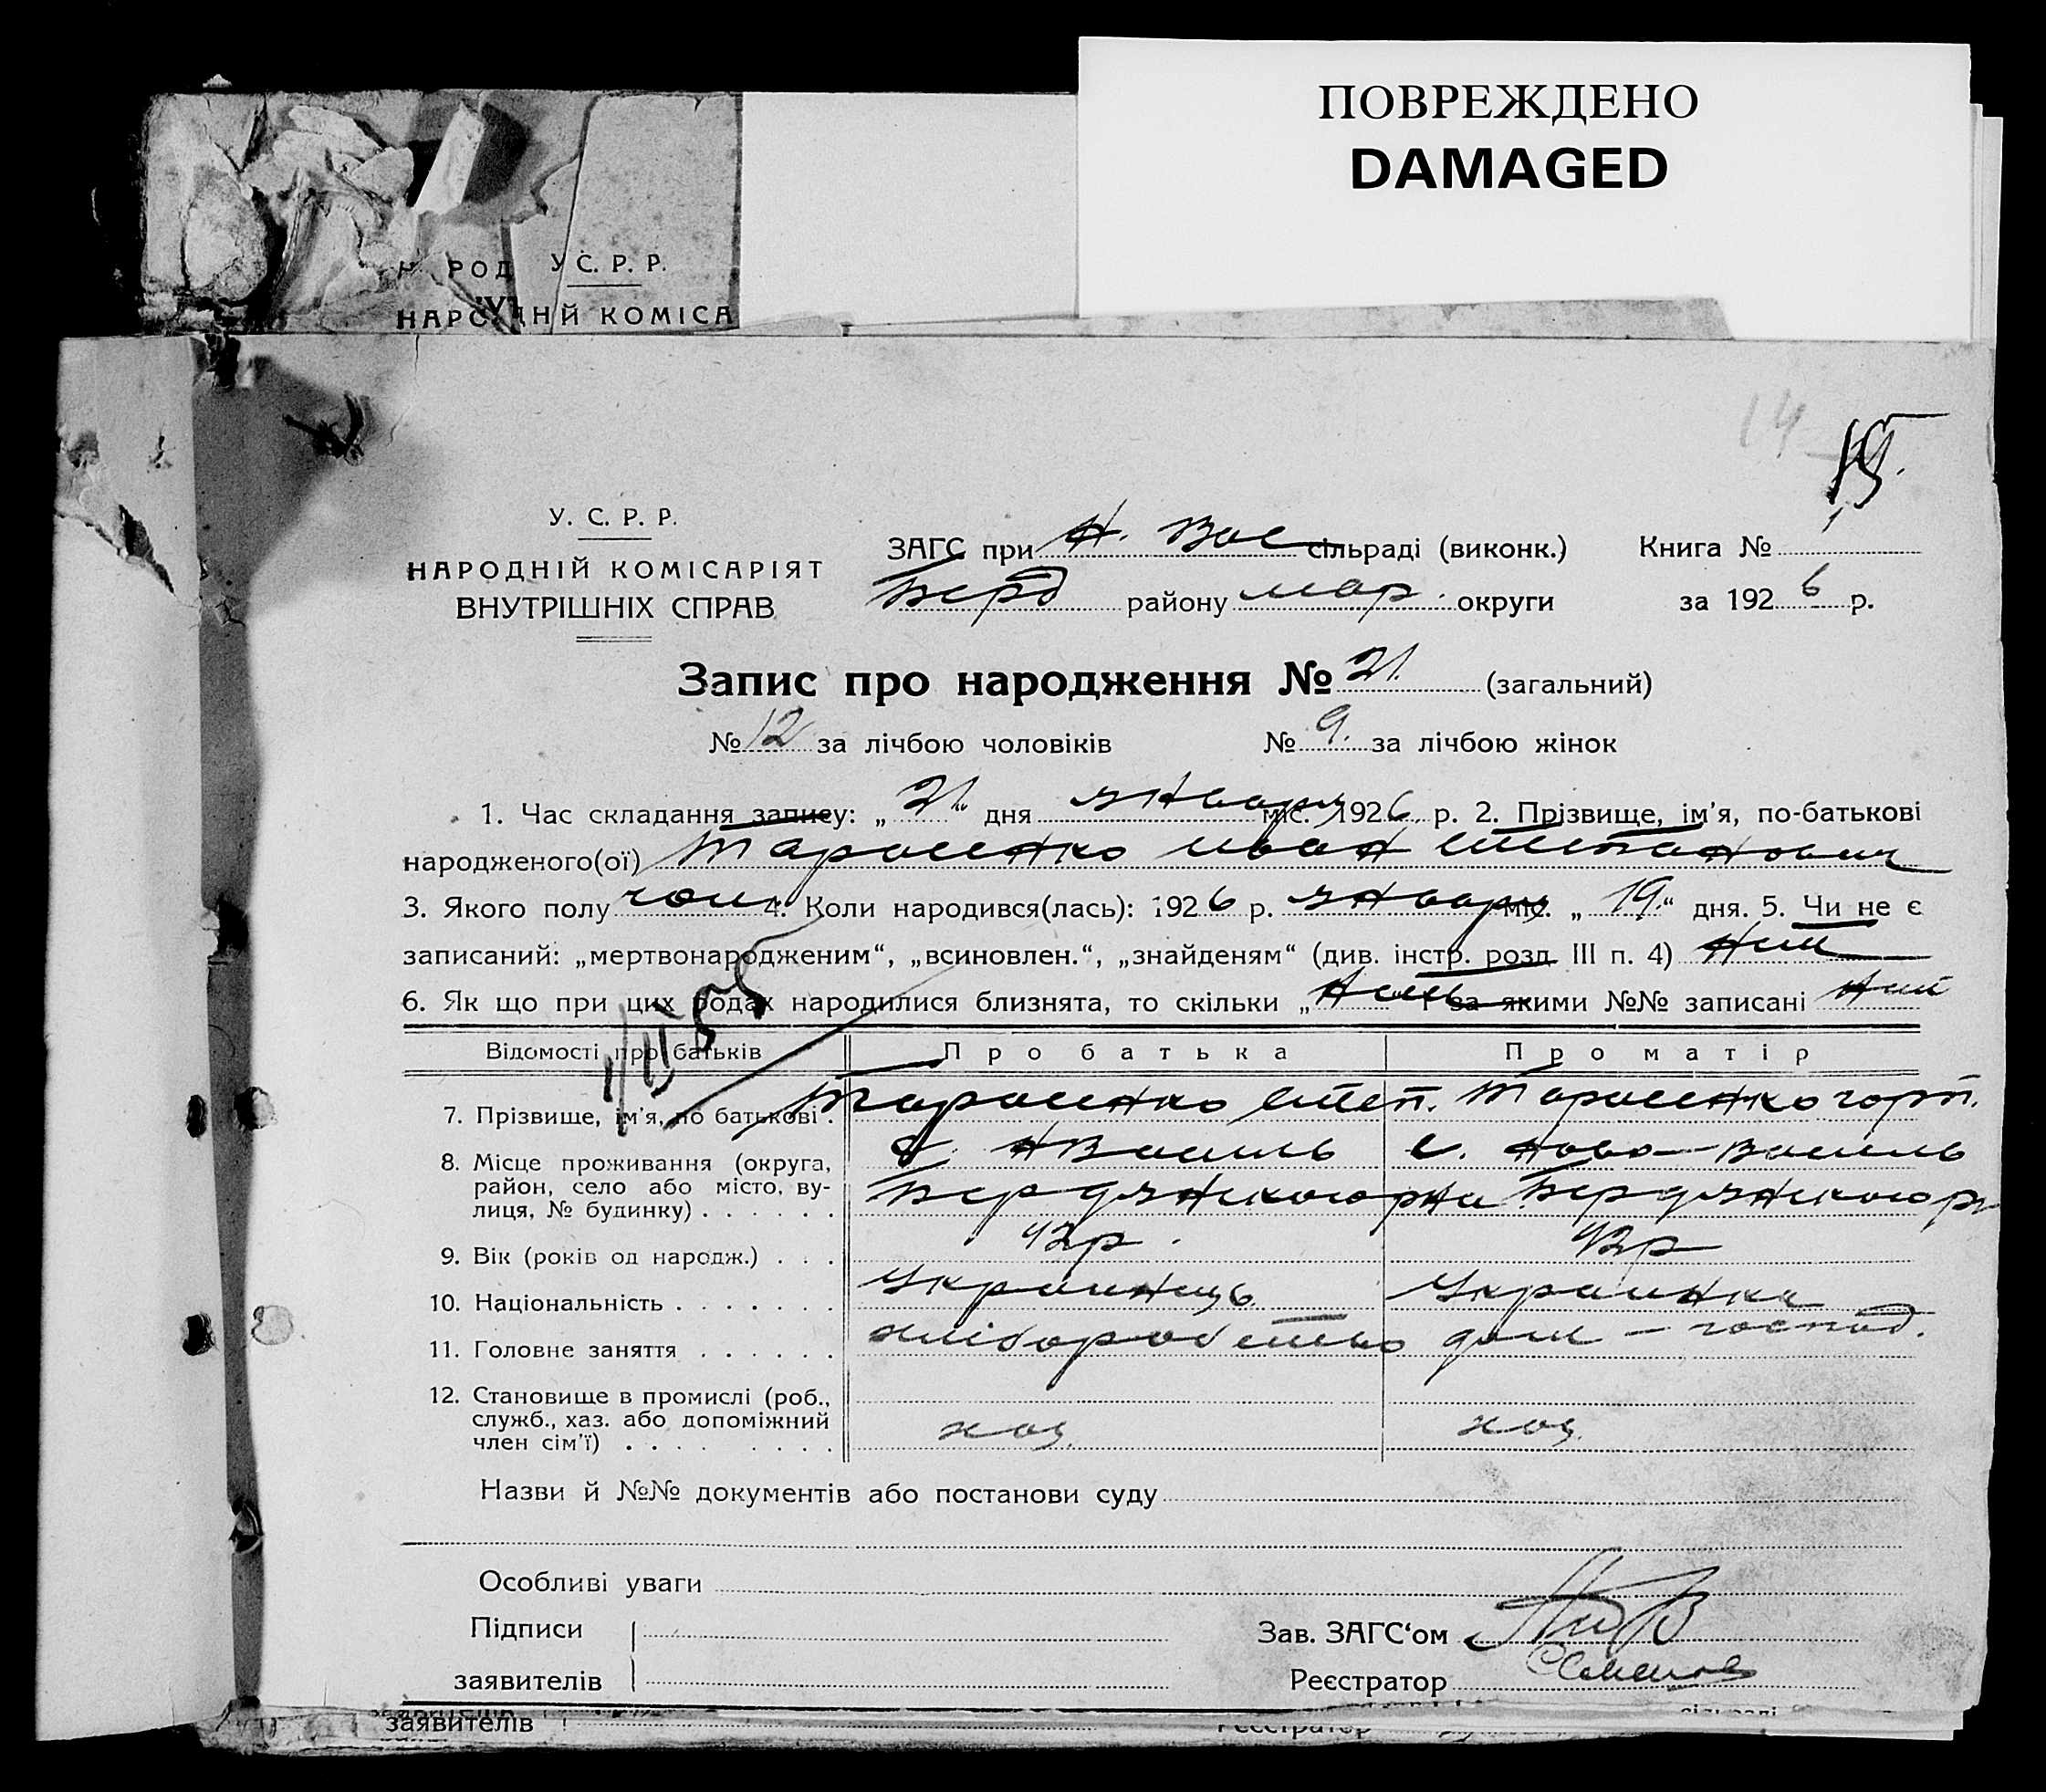 ПОВРЕЖДЕНО
DAMAGED
У С. Р. Р.
КОМІСА
14
15
У. С. Р. Р.
НАРОДНІЙ КОМІСАРІЯТ
ВНУТРІШНІХ СПРАВ
ЗАГС при Н. Вас сільраді (виконк.) Книга №
Берд району мар. округи за 1926 р.
Запис про народження № 21. (загальний)
№ 12 за лічбою чоловіків № 9. за лічбою жінок
1. Час складання запису: „21“ дня января міс. 1926 р. 2. Прізвище, ім'я, по-батькові
народженого(ої) Тарасенко Иван Степанович
3. Якого полу чол. 4. Коли народився(лась): 1926 р. января міс. „19“ дня. 5. Чи не є
записаний: „мертвонародженим“, „всиновлен.“, „знайденям“ (див. інстр. розд III п. 4)
6. Як що при цих родах народилися близнята, то скільки „ і за якими №№ записані
Відомості про батьків Про батька Про матір
7. Прізвище, ім'я, по батькові . Тарасенко Степ. Тарасенко горп.
8. Місце проживання (округа, с. НВасиль с. Ново-Василь
район, село або місто, ву-
лиця, № будинку) . . . . . . Бердянского рна Бердянского р
9. Вік (років од народж.) . . . 42р. 42р
10. Національність . . . . . . . Украинець Украинка
11. Головне заняття . . . . . . хліборобство дом-господ.
12. Становище в промислі (роб.,
служб., хаз. або допоміжний
член сім'ї) . . . . . . . . хоз. хоз.
Назви й №№ документів або постанови суду
Особливі уваги
Підписи
Зав. ЗАГС‘ом
заявителів
Реєстратор
заявителів